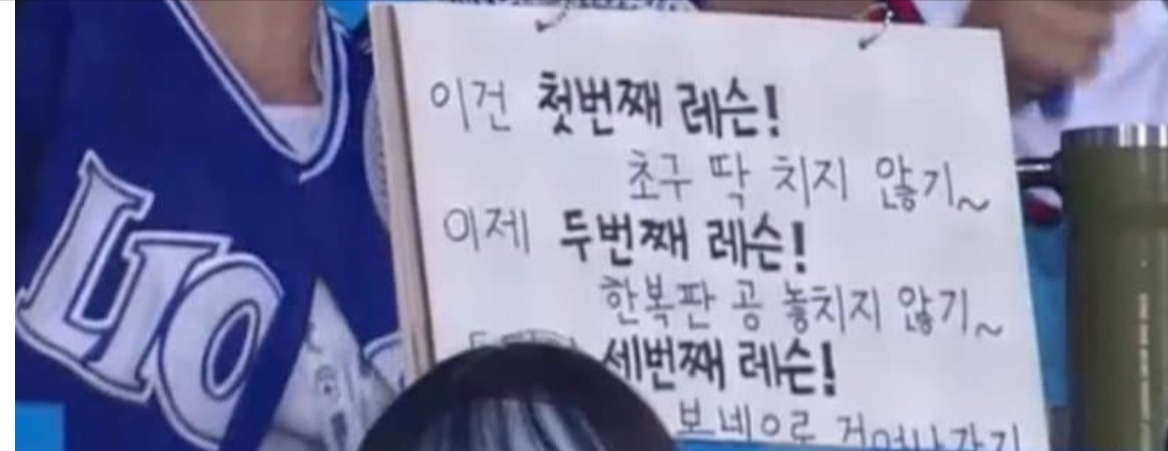 LIO
이건 첫번째 레슨!
초구 딱 치지 않기~
이제 두번째 레슨!
한복판 공 놓치지 않기~
세번째 레슨!
보네으로 걸어나가기